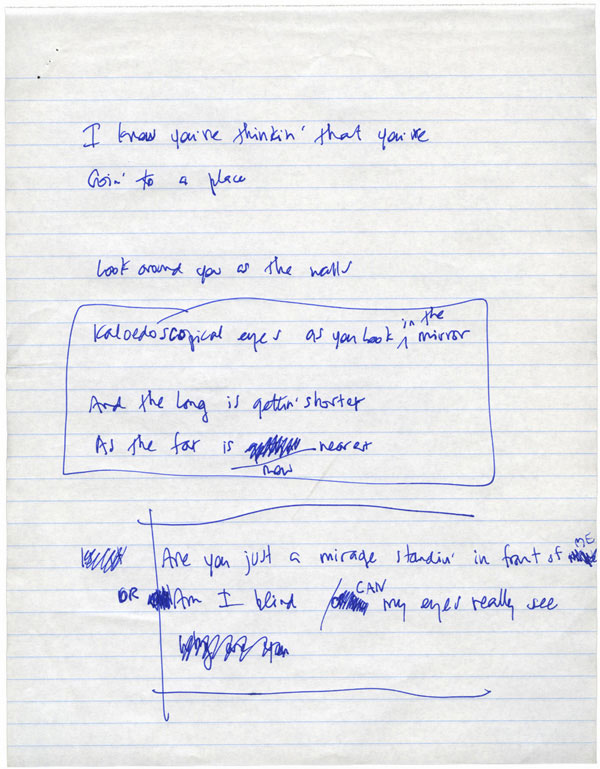 I know you're thinkin' that you're
Goin' to a place
Look around you as the walls
Kaloedoscopical eyes as you look in the mirror
And the long is gettin' shorter
As the far is now nearer
Are you just a mirage standin' in front of ME
OR Am I blind CAN my eyes really see